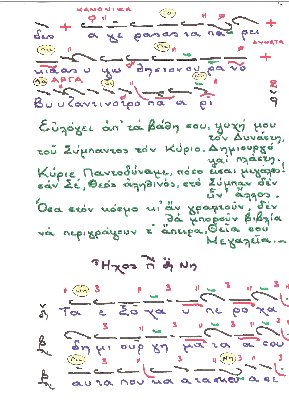 ΚΑΝΟΝΙΚΑ
δες α γε ρασασ τα πα ρει
ΔΥΝΑΤΑ
ΑΡΓΑ
Βυ υζαντινο τρο πα α ρι
Εὐλόγει ἀπ' τά βάθη σου, ψυχή μου
τόν Δυνάστη,
τοῦ Σύμπαντος τόν Κύριο. Δημιουργό
καί πλάστη.
Κύριε Παντοδύναμε, πόσο εἶσαι μεγάλος!
σάν Σέ, Θεός ἀληθινός, στό Σύμπαν δέν
εἶν' ἄλλος.
Ὅσα στόν κόσμο κι' ἄν γραφτοῦν, δέν
θά μποροῦν βιβλία
νά περιγράψουν τ' ἄπειρα, Θεῖα σου
Μεγαλεῖα...
Ἦχος Νη
Τα ε ξο χα υ πε ρο χα
δη μι ουρ γη μα τα α σου
αυτα που κα ατα σκευ α σε